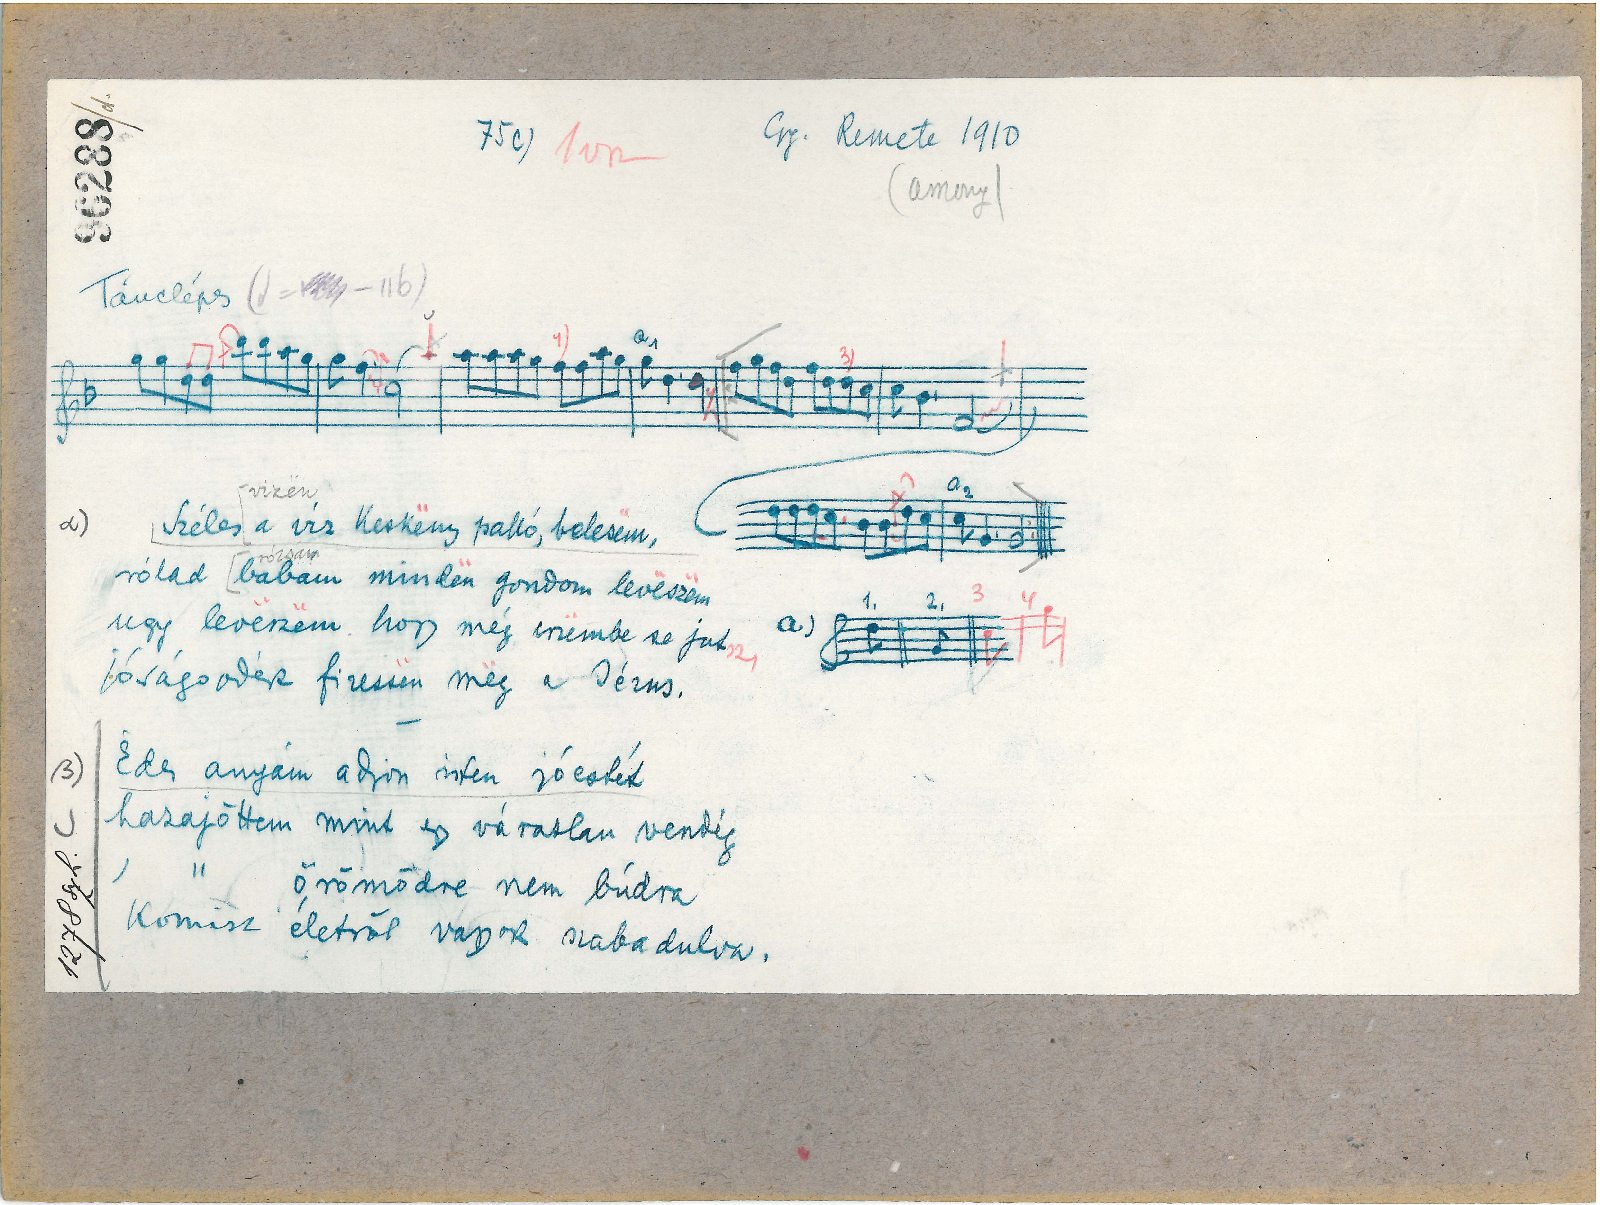 96288/d
75c) 1 vsz
Gy. Remete 1910
(asszony)
Tánclépés ( = – 116)
4)
a1
3)
a2
vizën
α) Széles a víz keskëny palló, belesëm,
rózsám
rólad babám mindën gondom levëszëm
ugy levëszëm hogy még eszëmbe se jutsz,
jóságodér fizessën mëg a Jézus.
a) 1. 2. 3 4
β) Édes anyám adjon isten jóestét
hazajöttem mint egy váratlan vendég
" örömödre nem búdra
Komisz életről vagyok szabadulva.
1278 gyh. (